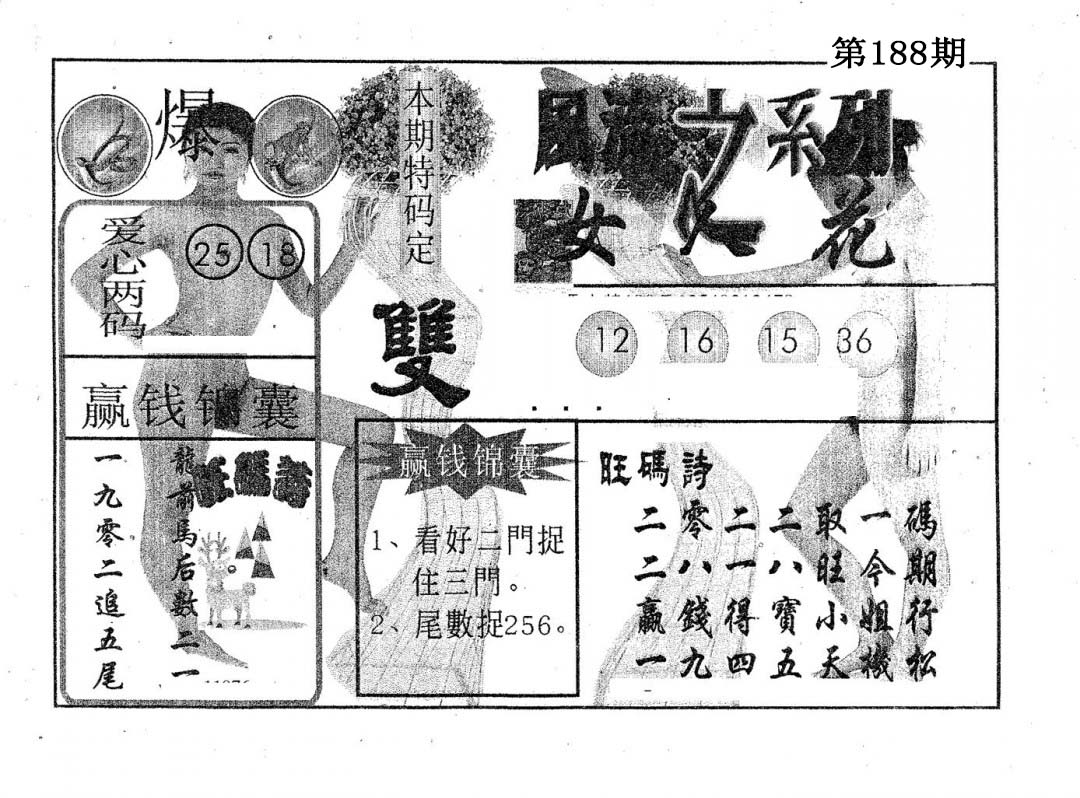 第188期
爆
本期特码定
雙
系列
女人花
爱心两码
25 18
12 16 15 36
赢钱锦囊
旺碼詩
龍前馬后數二一
一九零二追五尾
赢钱锦囊
1、看好二門捉
住三門。
2、尾數捉256。
旺碼詩
二零二二取一碼
二八一八旺今期
贏錢得寶小姐行
一九四五天機松